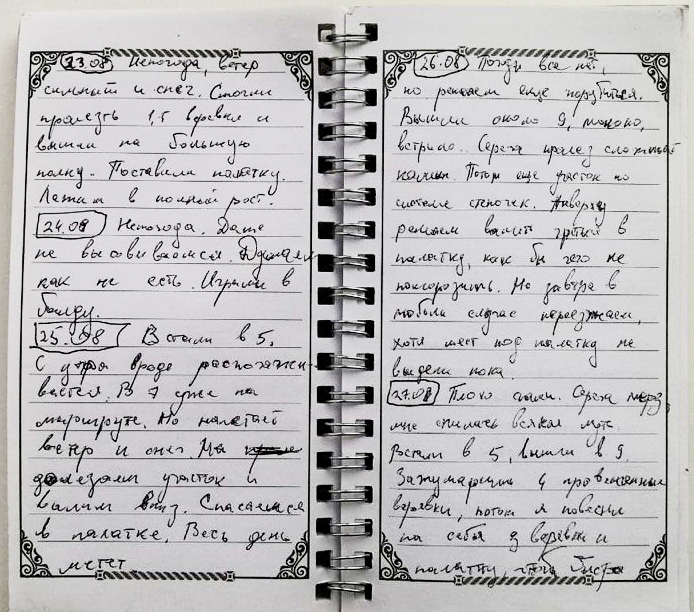 23.08 Непогода, ветер
сильный и снег. Смогли
пролезть 1,5 веревки и
вышли на большую
полку. Поставили палатку.
Лежим в полный рост.
24.08 Непогода. Даже
не высовываемся. Думаем
как не есть. Играли в
балду.
25.08 Встали в 5.
С утра вроде распогажи-
вается. В 7 уже на
маршруте. Но налетает
ветер и снег. Мы
долезаем участок и
валим вниз. Спасаемся
в палатке. Весь день
метет.
26.08 Погоды все нет,
но решаем еще порубиться.
Вышли около 9, молоко,
встряло. Сережа пролез сложный
камин. Потом еще участок по
системе стеночек. Наверху
решаем валить греться в
палатку, как бы чего не
поморозить. Но завтра в
любом случае переезжаем,
хотя мест под палатку не
видели пока.
27.08 Плохо спали. Сережа мерз,
мне снилась всякая муть.
Встали в 5, вышли в 9.
Зажумарили 4 провешенные
веревки, потом я повесил
на себя 3 веревки и
палатку,